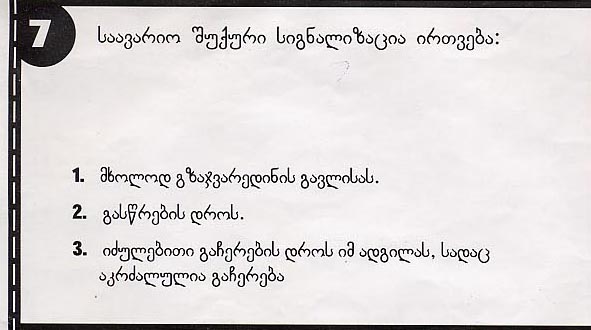 7
საავარიო შუქური სიგნალიზაცია ირთვება:
1. მხოლოდ გზაჯვარედინის გავლისას.
2. გასწრების დროს.
3. იძულებითი გაჩერების დროს იმ ადგილას, სადაც
აკრძალულია გაჩერება